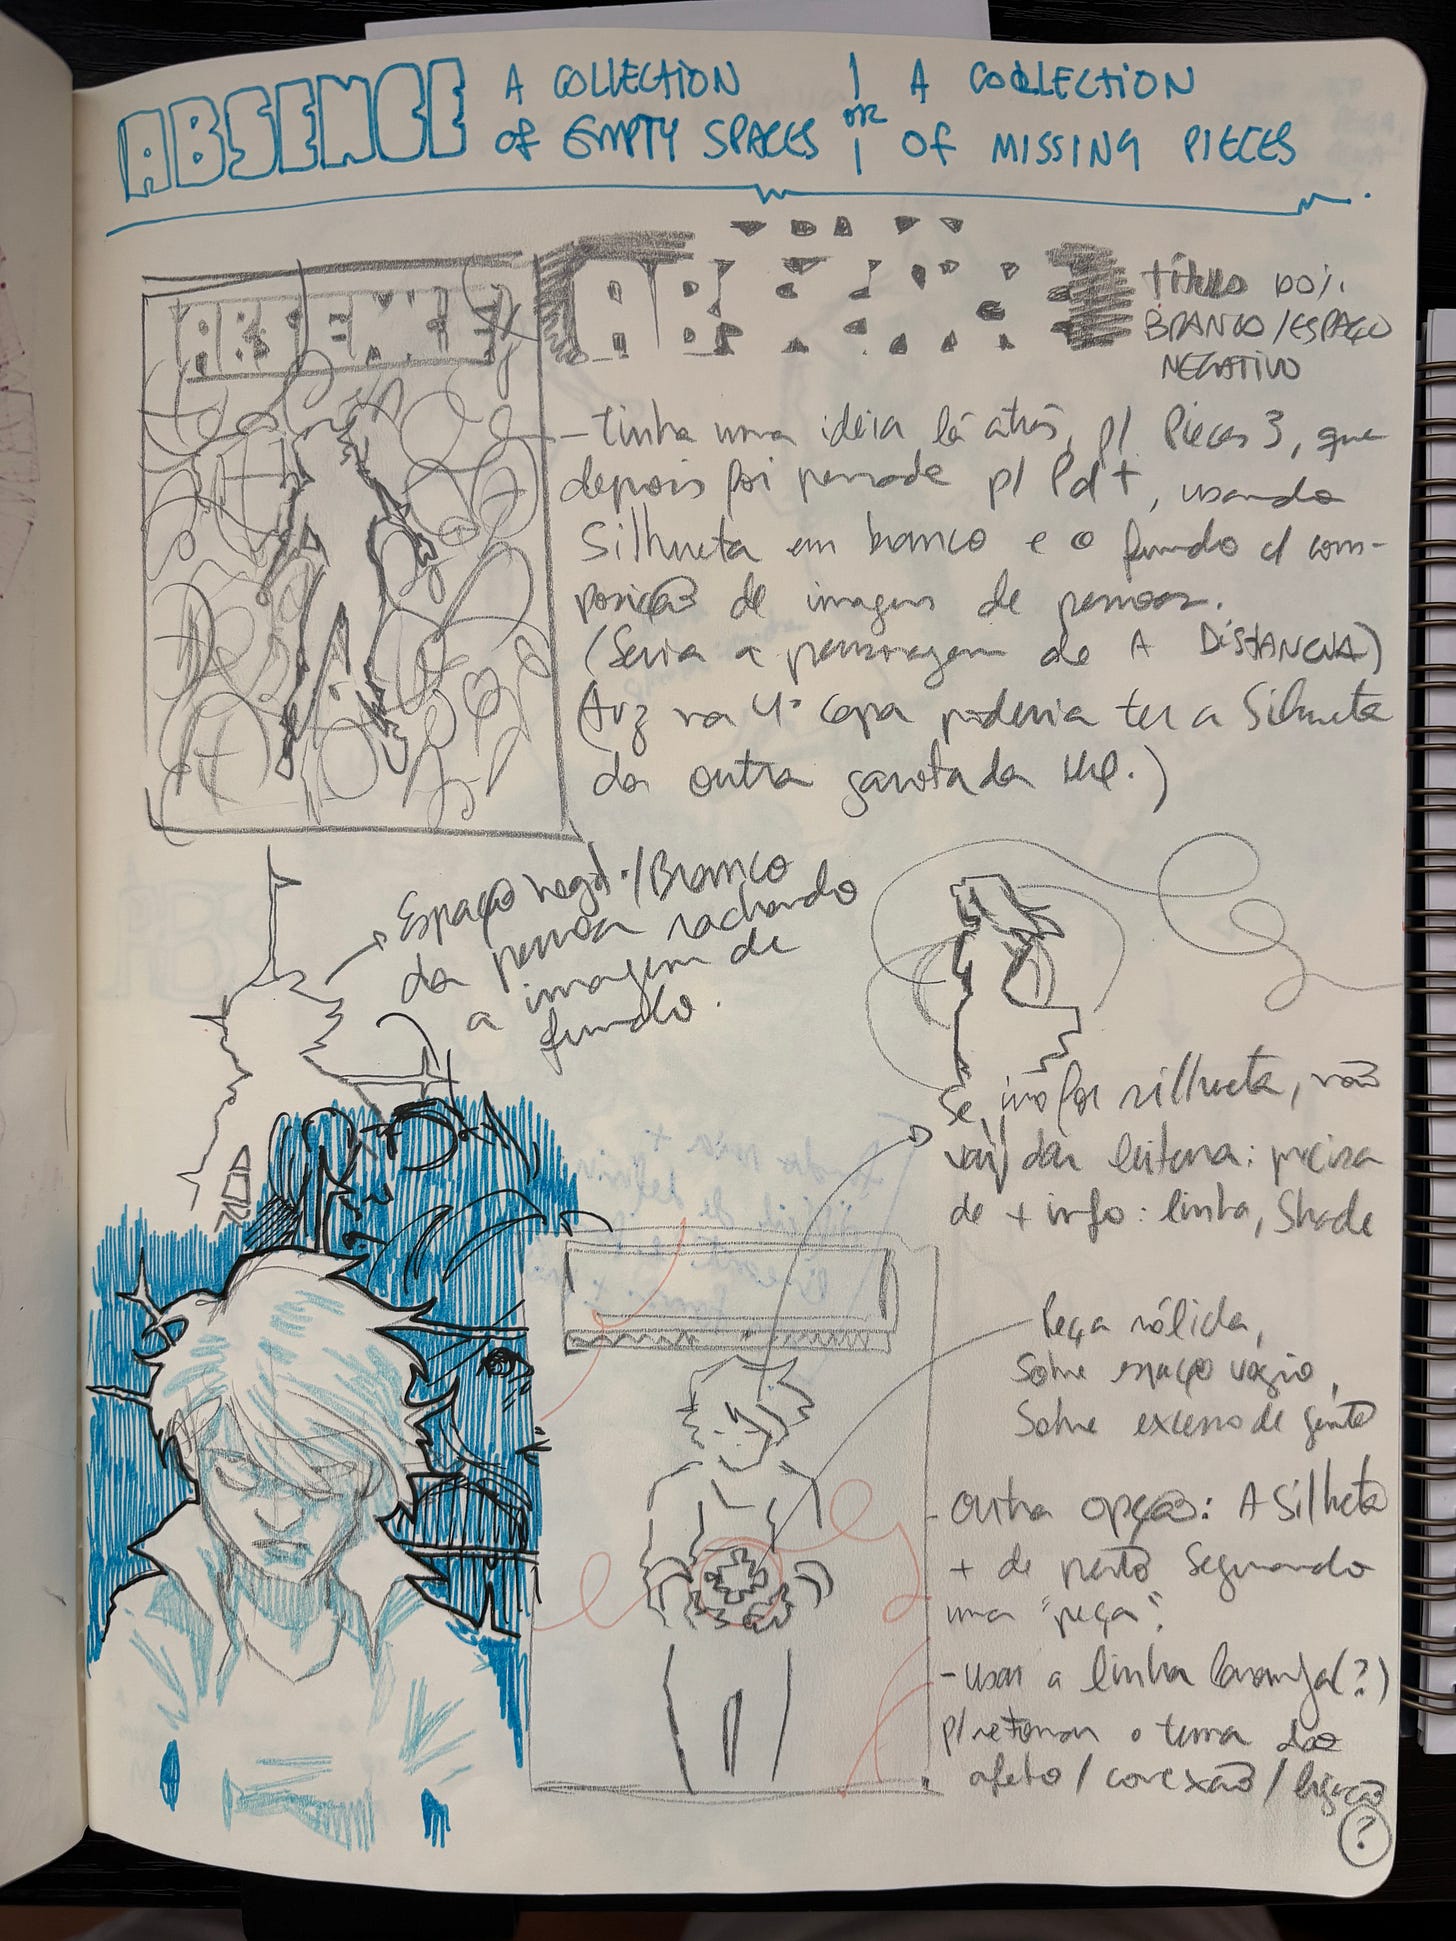 ABSENCE A COLLECTION OR A COLLECTION
OF EMPTY SPACES OF MISSING PIECES
ABSENCE
AB
título 100%
BRANCO/ESPAÇO
NEGATIVO
- tinha uma ideia lá atrás, p/ Pieces 3, que
depois foi p/ Pd+, usando
Silhueta em branco e o fundo c/ com-
posição de imagens de pessoas.
(Seria a personagem de A DISTANCIA)
na 4ª capa poderia ter a Silhueta
da outra garota da
Espaço negat./Branco
da pessoa rachando
a imagem de
fundo.
Se for silhueta, não
vai dar leitura: precisa
de + info: linha, Shade
Peça sólida,
Sobre espaço vazio,
Sobre excesso de gente
- Outra opção: A Silhueta
+ de perto Segurando
uma "peça".
- usar a linha laranja(?)
p/ retomar o tema do
afeto/conexão/ligação
?